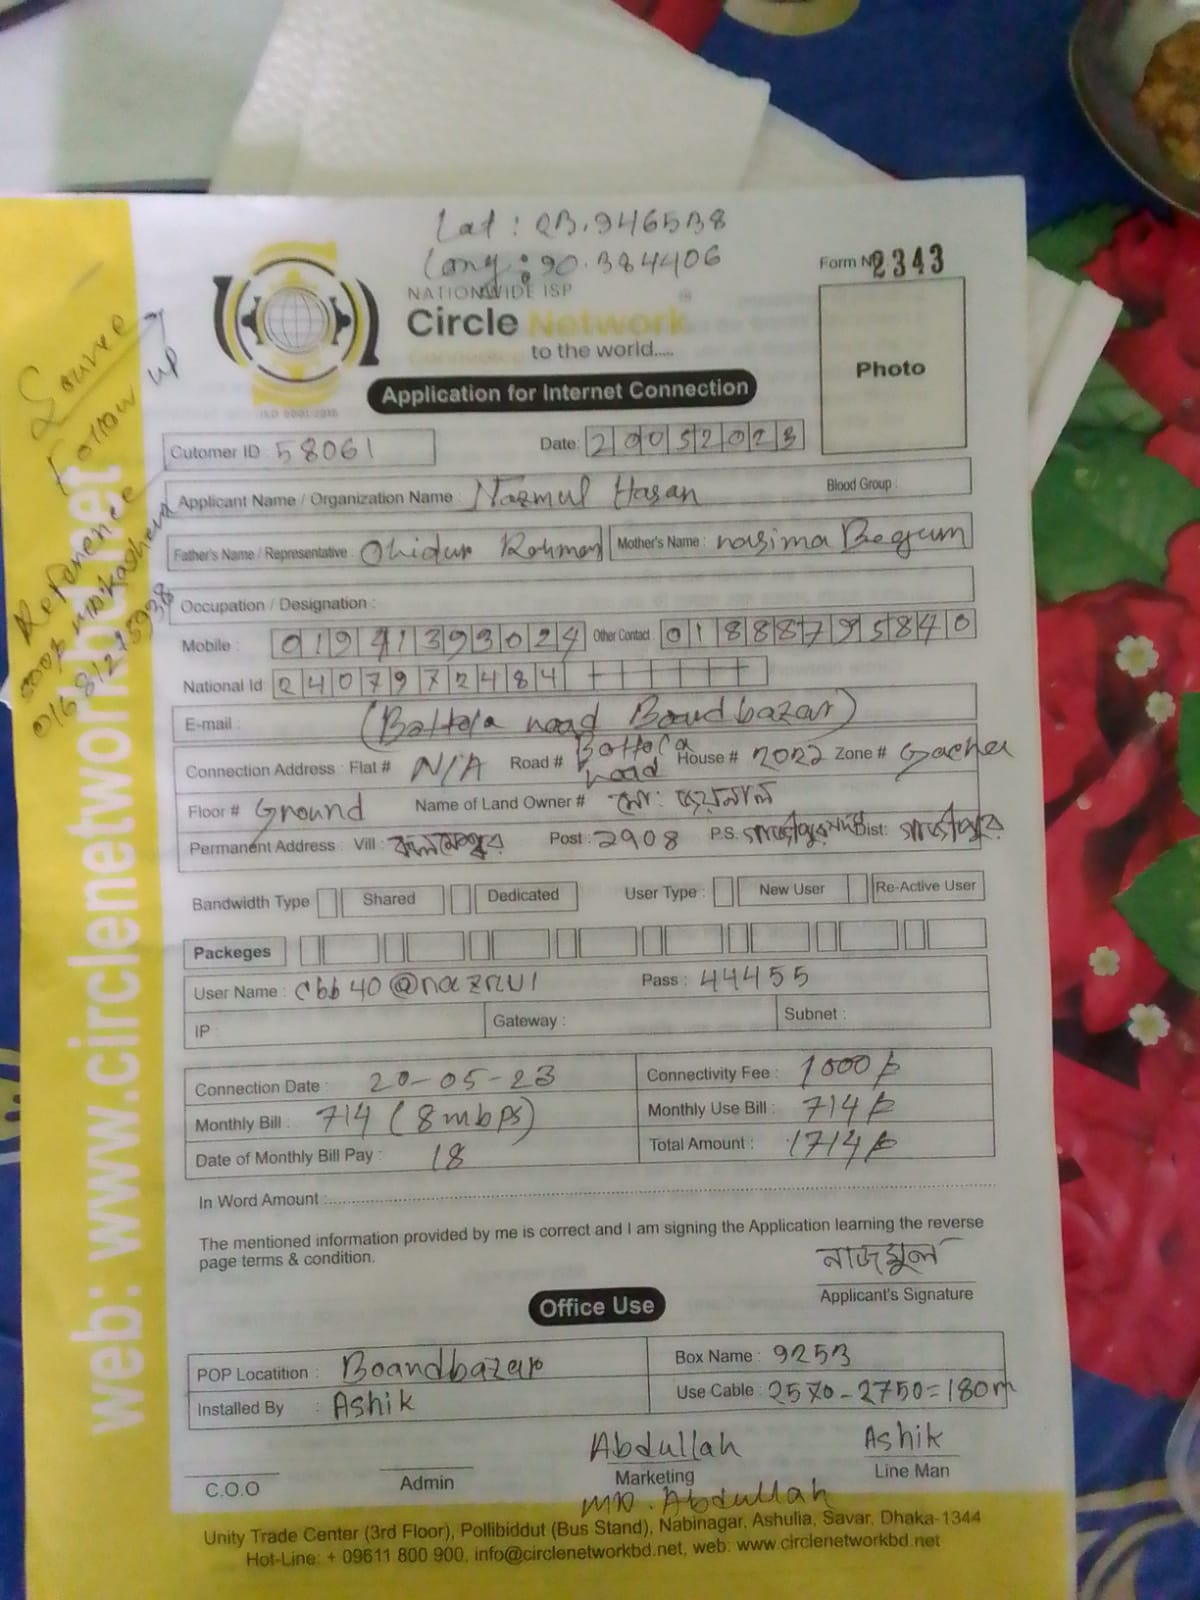 Lat : 23.946538
Long : 90.384406
Form No 2343
NATIONWIDE ISP
Circle Network
to the world.....
ISO 9001:2015
Application for Internet Connection
Photo
Source
Follow up
Reference
web: www.circlenetworkbd.net
Cutomer ID : 58061
Date: 20052023
Applicant Name / Organization Name : Nazmul Hasan
Blood Group :
Father's Name / Representative : Ohidur Rahman
Mother's Name : nasima Begum
Occupation / Designation :
Mobile : 01941393024 Other Contact : 01888795840
National Id 2407972484
E-mail : (Battola road Boardbazar)
Connection Address : Flat # N/A Road # Battola road House # 2022 Zone # Gacha
Floor # Ground Name of Land Owner # মো: জয়নাল
Permanent Address : Vill : কলমেশ্বর Post : 2908 P.S. গাজীপুর সদর Dist: গাজীপুর
Bandwidth Type Shared Dedicated User Type : New User Re-Active User
Packeges
User Name : cbb40@nazrul Pass : 44455
IP Gateway : Subnet :
Connection Date : 20-05-23 Connectivity Fee : 1000/-
Monthly Bill : 714 (8mbps) Monthly Use Bill : 714/-
Date of Monthly Bill Pay : 18 Total Amount : 1714/-
In Word Amount :
The mentioned information provided by me is correct and I am signing the Application learning the reverse
page terms & condition.
নাজমুল
Applicant's Signature
Office Use
POP Locatition : Boardbazar Box Name : 9253
Installed By : Ashik Use Cable : 2570-2750=180m
Abdullah Ashik
C.O.O Admin Marketing Line Man
MD. Abdullah
Unity Trade Center (3rd Floor), Pollibiddut (Bus Stand), Nabinagar, Ashulia, Savar, Dhaka-1344
Hot-Line: + 09611 800 900, info@circlenetworkbd.net, web: www.circlenetworkbd.net